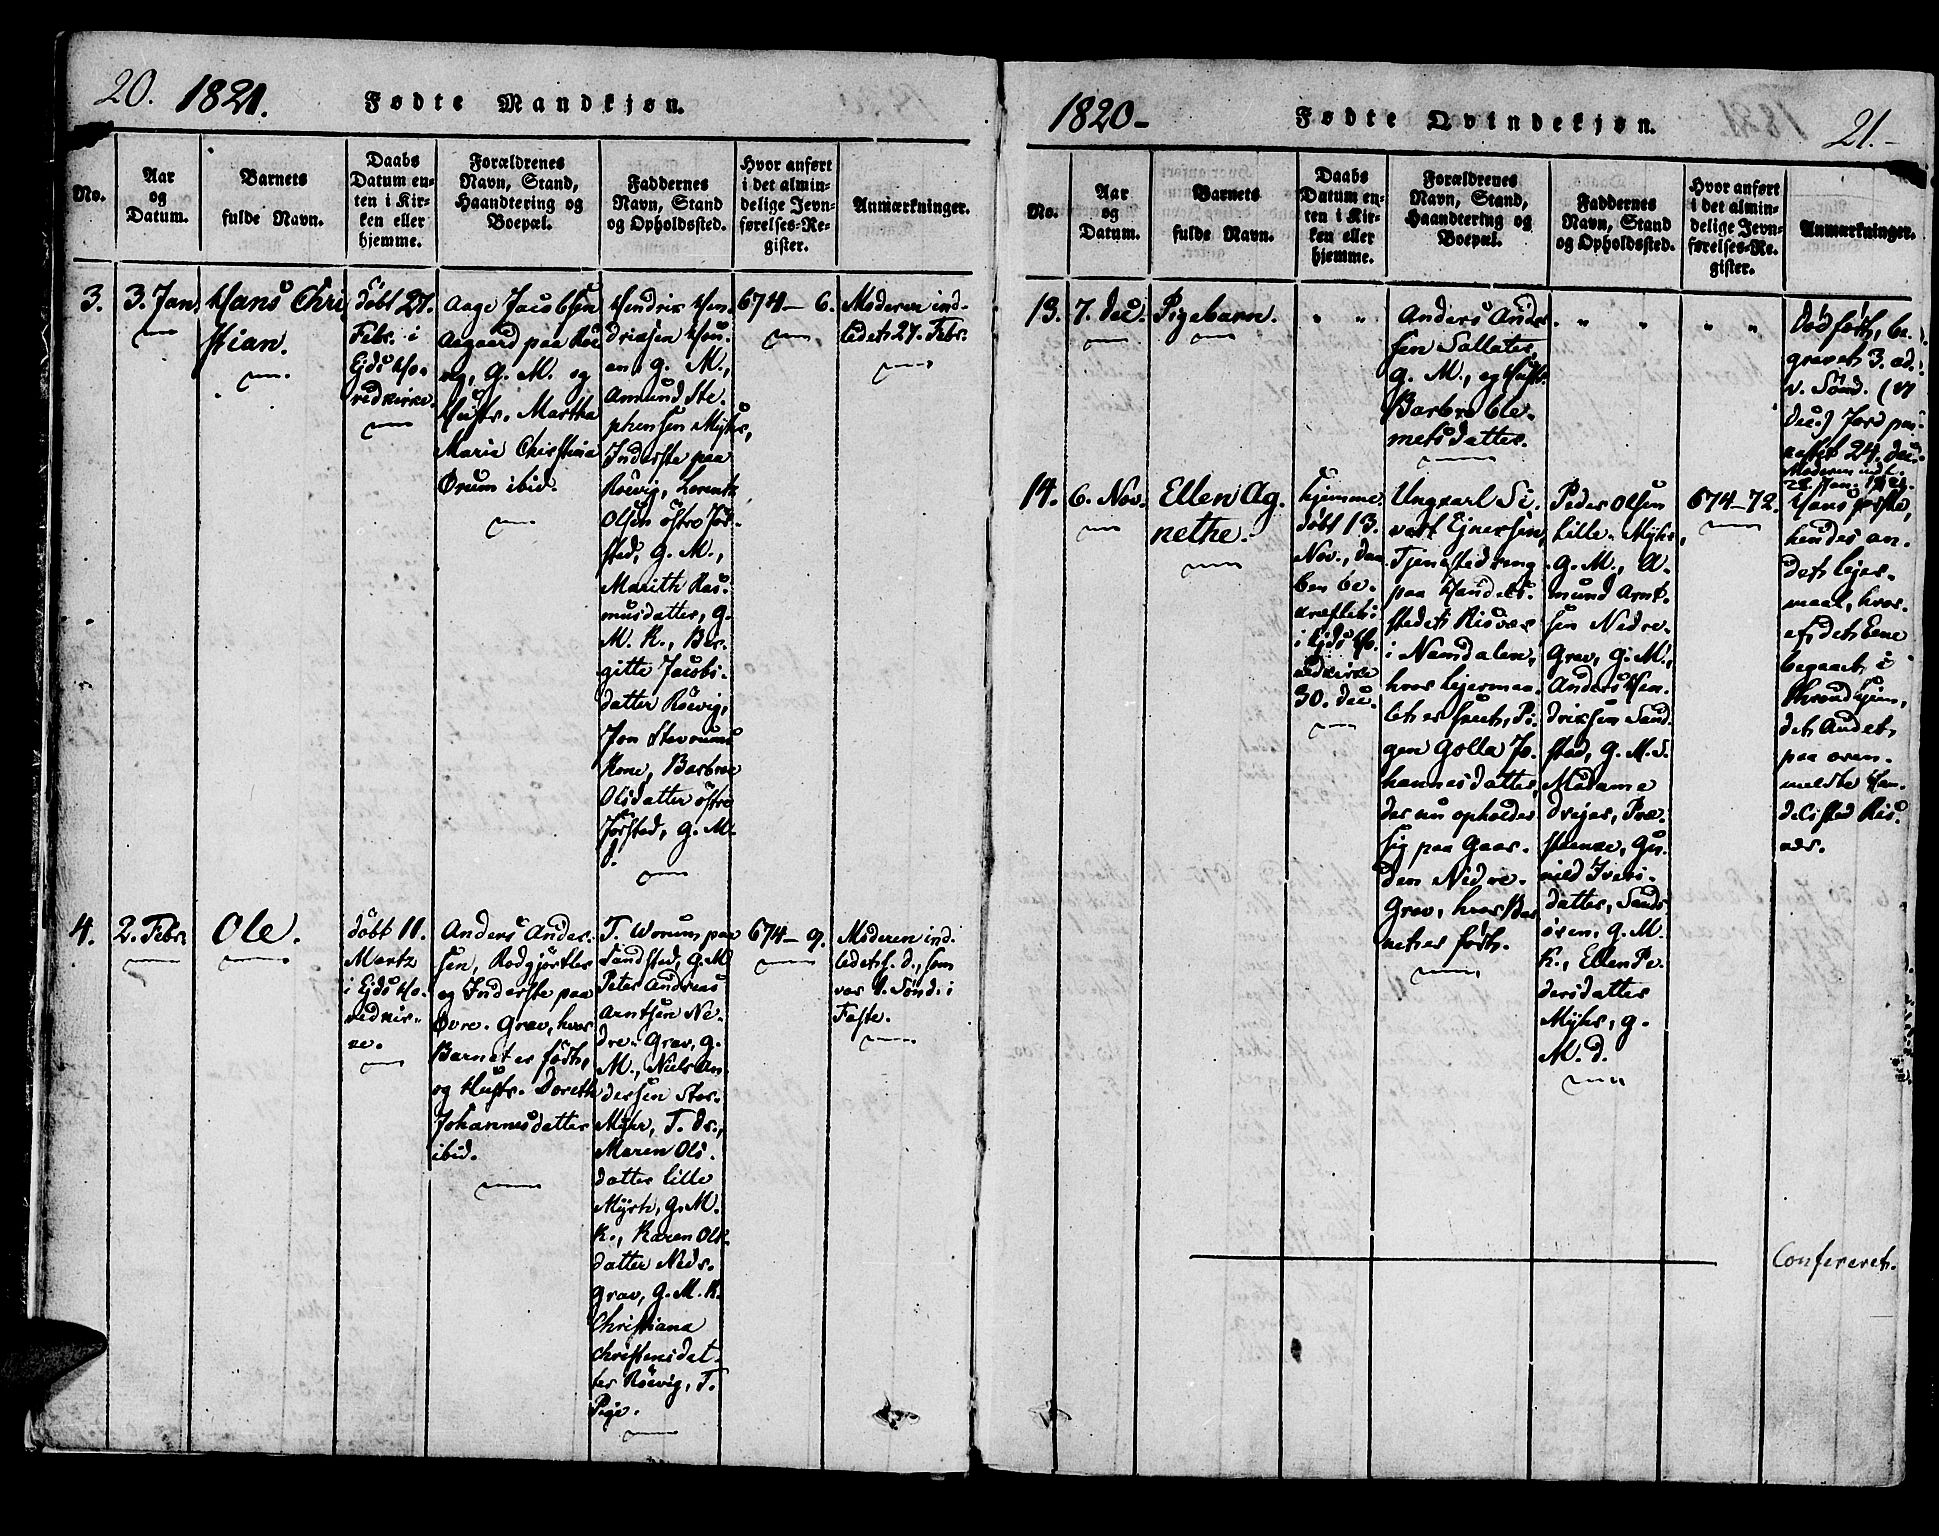 20. 1821. Fødte Mandkjøn.
No.
Aar
og
Datum.
Barnets
fulde Navn.
Daabs
Datum en-
ten i Kir-
ken eller
hjemme.
Forældrenes
Navn, Stand,
Haandtering og
Boepæl.
Faddernes
Navn, Stand
og Opholdssted.
Hvor anført
i det almin-
delige Jevn-
førelses-Re-
gister.
Anmærkninger.
3.
3. Jan
Hans Chri
stian.
döbt 27.
Febr. i
Ejds Ho-
vedkirke.
Aage Jacobsen
Aagaard paa Röe
vig, G. M. og
Hustr. Martha
Maria Christina
Örum ibid.
Hendrik Hen
driksen Hou-
en, g. M.,
Amund Ste-
phensen Myhr,
Inderste paa
Röevig, Lorentz
Olsen östre För-
stad, g. M.,
Marith Ras-
musdatter, g.
M. K., Bir-
gitte Jacobs-
datter Röevig,
Jon Stavrums
Kone, Barbroe
Olsdatter östre
Förstad, g. M.
d.
674 - 6.
Moderen ind-
ledet 27. Febr.
4.
2. Febr.
Ole.
döbt 11.
Martz
i Ejds Ho-
vedkir-
ke.
Anders Ander-
sen, Rodgjörtler
og Inderste paa
Övre-Grav, hvor
Barnet er födt,
og Hustr. Doreth
Johannesdatter
ibid.
T. Worum paa
Sandstad, g. M
Peter Andreas
Arntsen Ne-
dre-Grav, g.
M., Niels An-
dersen Stor-
Myhr, T. dr.,
Maren Ols-
datter lille
Myhr, g. M.
K., Karen Ols-
datter Nedr.
grav, g. M. K.
Christiana
Christensdat-
ter Röevig, T.
Pige.
674 - 9.
Moderen ind-
ledet s. d., som
var 1. Sönd. i
Faste.
1820- Fødte Qvindekjøn. 21.-
No.
Aar
og
Datum.
Barnets
fulde Navn.
Daabs
Datum en-
ten i Kir-
ken eller
hjemme.
Forældrenes
Navn, Stand,
Haandtering og
Boepæl.
Faddernes
Navn, Stand
og Opholdssted.
Hvor anført
i det almin-
delige Jevn-
førelses-Re-
gister.
Anmærkninger.
13.
7. Dec.
Pigebarn.
" "
Anders Ander
sen Sallater,
g. M., og Hustr.
Barbro Cle-
metsdatter.
" "
" "
Dödfödt, be-
gravet 3. Ad-
v. Sönd. (17
Dec.) Jord paa-
kastet 24. Dec.
Moderen indl.
28. Jan. 1821.
14.
6. Nov.
Ellen Ag-
nethe.
hjemme-
döbt 13.
Nov., Daa
ben be-
kræftet
i Ejds Ho-
vedkirke
30. Dec.
Ungkarl Si-
vert Ejnersen,
Tjenestedreng
paa Handels-
stedet Risvær
i Namdalen,
hvor Lejermaa-
let er skeet, Pi-
gen Golla Jo-
hannesdatter,
der nu opholder
sig paa Gaar-
den Nedre-
Grav, hvor Bar
net er födt.
Peder Olsen
lille-Myhr,
g. M., A-
mund Arnt-
sen Nedre-
Grav, g. M.,
Anders Hen-
driksen Sand-
stad, g. M. S.
Madame
Drejer, Præ-
steenke, Gu-
nild Ivers-
datter, Sands
ören, g. M.
K., Ellen Pe-
dersdatter
Myhr, g.
M. d.
674-72.
Hans förste,
hendes an-
det Lejer-
maal, hvor-
af det Eene
begaaet i
Throndhjem,
det Andet
paa oven-
meldte Han-
delssted Ris-
vær.
Confereret.